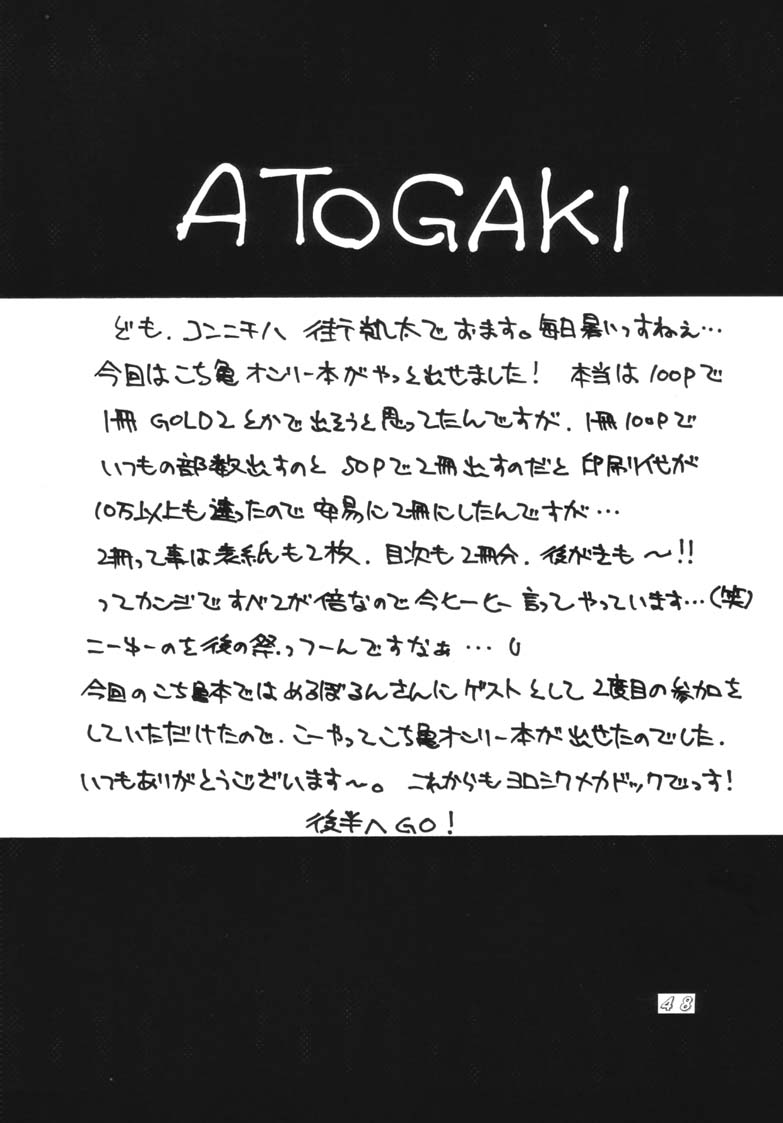 ATOGAKI
ども、コンニチハ 街 太でおます。毎日暑いっすねぇ…
今回はこち亀オンリー本がやっと出せました! 本当は100Pで
1冊 GOLD2 とかで出そうと思ってたんですが、1冊100Pで
いつもの部数出すのと 50Pで2冊出すのだと 印刷代が
10万以上も違ったので 安易に2冊にしたんですが…
2冊って事は表紙も2枚、目次も2冊分、後がきも〜!!
ってカンジですべてが倍なので今ヒーヒー言ってやっています…(笑)
こーゆーのを後の祭っつーんですなぁ…
今回のこち亀本ではめるぼるんさんにゲストとして2度目の参加を
していただけたので、こーやってこち亀オンリー本が出せたのでした。
いつもありがとうございます〜。 これからもヨロシクメカドックでっす!
後半へGO!
48